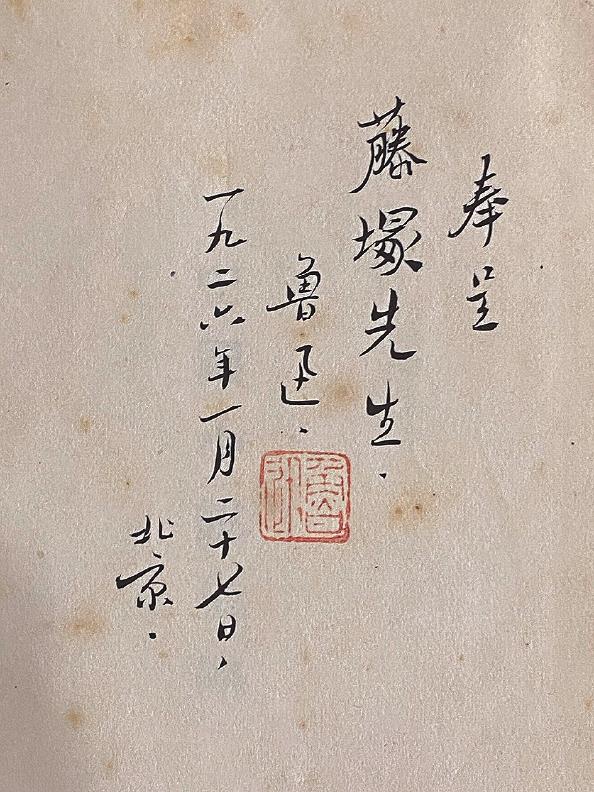 奉呈
藤塚先生.
魯迅.
一九二六年一月二十七日,
北京.